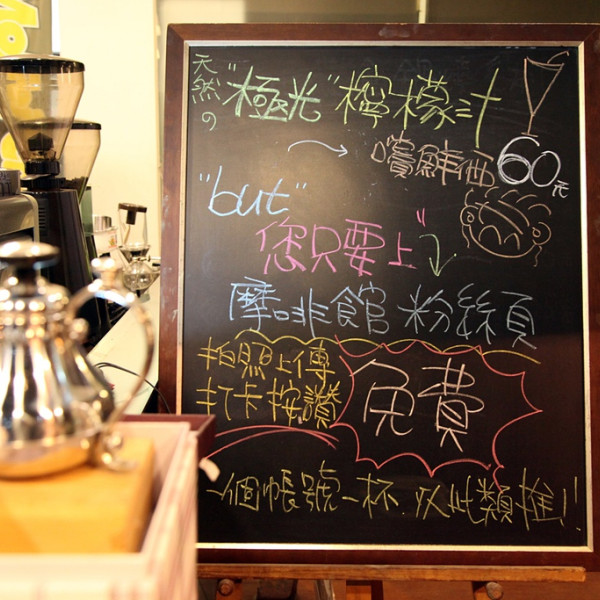 天然の"極光"檸檬汁
嚐鮮価60元
"but"
您只要上"
摩啡館 粉絲頁
拍照上傳
打卡按讚
免費
一個帳號一杯.以此類推!!